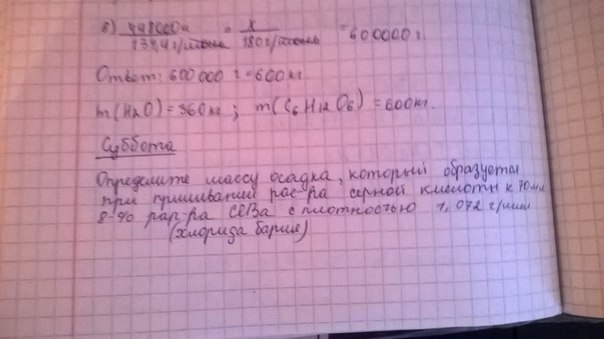 8) 448000л / 134,4 г/моль = x / 180 г/моль = 600000 г.
Ответ: 600 000 г = 600 кг.
m(H2O) = 360 кг ; m(C6H12O6) = 600 кг.
Суббота
Определите массу осадка, который образуется
при приливании рас-ра серной кислоты к 70 мл
8-% рар-ра ClBa с плотностью 1,072 г/мл
(хлорида бария)